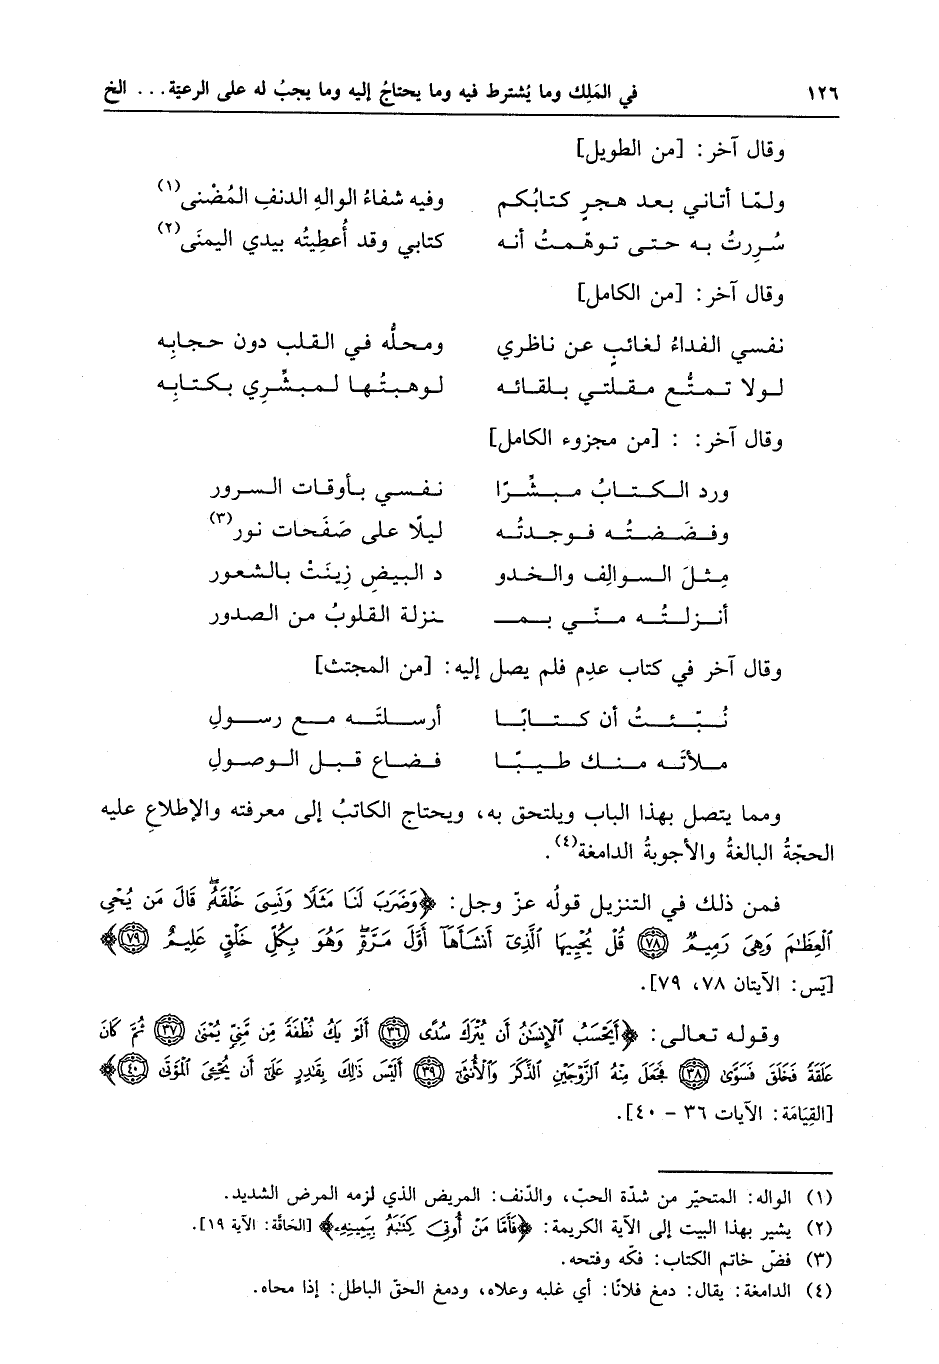 ١٢٦ في المَلِك وما يُشترط فيه وما يحتاجُ إليه وما يجبُ له على الرعيّة... الخ
وقال آخر: [من الطويل]
ولمّا أتاني بعد هجرٍ كتابُكم وفيه شفاءُ الوالهِ الدنفِ المُضْنى(١)
سُررتُ به حتى توهّمتُ أنه كتابي وقد أُعطِيتُه بيدي اليمنَى(٢)
وقال آخر: [من الكامل]
نفسي الفداءُ لغائبٍ عن ناظري ومحلُّه في القلب دون حجابِه
لولا تمتُّع مقلتي بلقائه لوهبتُها لمبشِّري بكتابِه
وقال آخر: : [من مجزوء الكامل]
ورد الكتابُ مبشِّرًا نفسي بأوقات السرور
وفضَضتُه فوجدتُه ليلًا على صَفَحات نور(٣)
مِثلَ السوالِف والخدو د البيضِ زِينَتْ بالشعور
أنزلتُه منّي بمـ ـنزلة القلوبُ من الصدور
وقال آخر في كتاب عدِم فلم يصل إليه: [من المجتث]
نُبّئتُ أن كتابًا أرسلتَه مع رسولِ
ملأتَه منك طيبًا فضاع قبل الوصولِ
ومما يتصل بهذا الباب ويلتحق به، ويحتاج الكاتبُ إلى معرفته والإطلاعِ عليه
الحجّةُ البالغةُ والأجوبةُ الدامغة(٤).
فمن ذلك في التنزيل قولُه عزّ وجل: ﴿وَضَرَبَ لَنَا مَثَلًا وَنَسِىَ خَلْقَهُۥۖ قَالَ مَن يُحْىِ
ٱلْعِظَٰمَ وَهِىَ رَمِيمٌ ﴿٧٨﴾ قُلْ يُحْيِيهَا ٱلَّذِىٓ أَنشَأَهَآ أَوَّلَ مَرَّةٍۖ وَهُوَ بِكُلِّ خَلْقٍ عَلِيمٌ ﴿٧٩﴾﴾
[يَس: الآيتان ٧٨، ٧٩].
وقوله تعالى: ﴿أَيَحْسَبُ ٱلْإِنسَٰنُ أَن يُتْرَكَ سُدًى ﴿٣٦﴾ أَلَمْ يَكُ نُطْفَةً مِّن مَّنِىٍّ يُمْنَىٰ ﴿٣٧﴾ ثُمَّ كَانَ
عَلَقَةً فَخَلَقَ فَسَوَّىٰ ﴿٣٨﴾ فَجَعَلَ مِنْهُ ٱلزَّوْجَيْنِ ٱلذَّكَرَ وَٱلْأُنثَىٰٓ ﴿٣٩﴾ أَلَيْسَ ذَٰلِكَ بِقَٰدِرٍ عَلَىٰٓ أَن يُحْـِۧىَ ٱلْمَوْتَىٰ ﴿٤٠﴾﴾
[القِيَامَة: الآيات ٣٦ - ٤٠].
(١) الواله: المتحيّر من شدّة الحبّ، والدّنف: المريض الذي لزمه المرض الشديد.
(٢) يشير بهذا البيت إلى الآية الكريمة: ﴿فَأَمَّا مَنْ أُوتِىَ كِتَٰبَهُۥ بِيَمِينِهِۦ﴾ [الحَاقَّة: الآية ١٩].
(٣) فضّ خاتم الكتاب: فكّه وفتحه.
(٤) الدامغة: يقال: دمغ فلانًا: أي غلبه وعلاه، ودمغ الحقّ الباطل: إذا محاه.